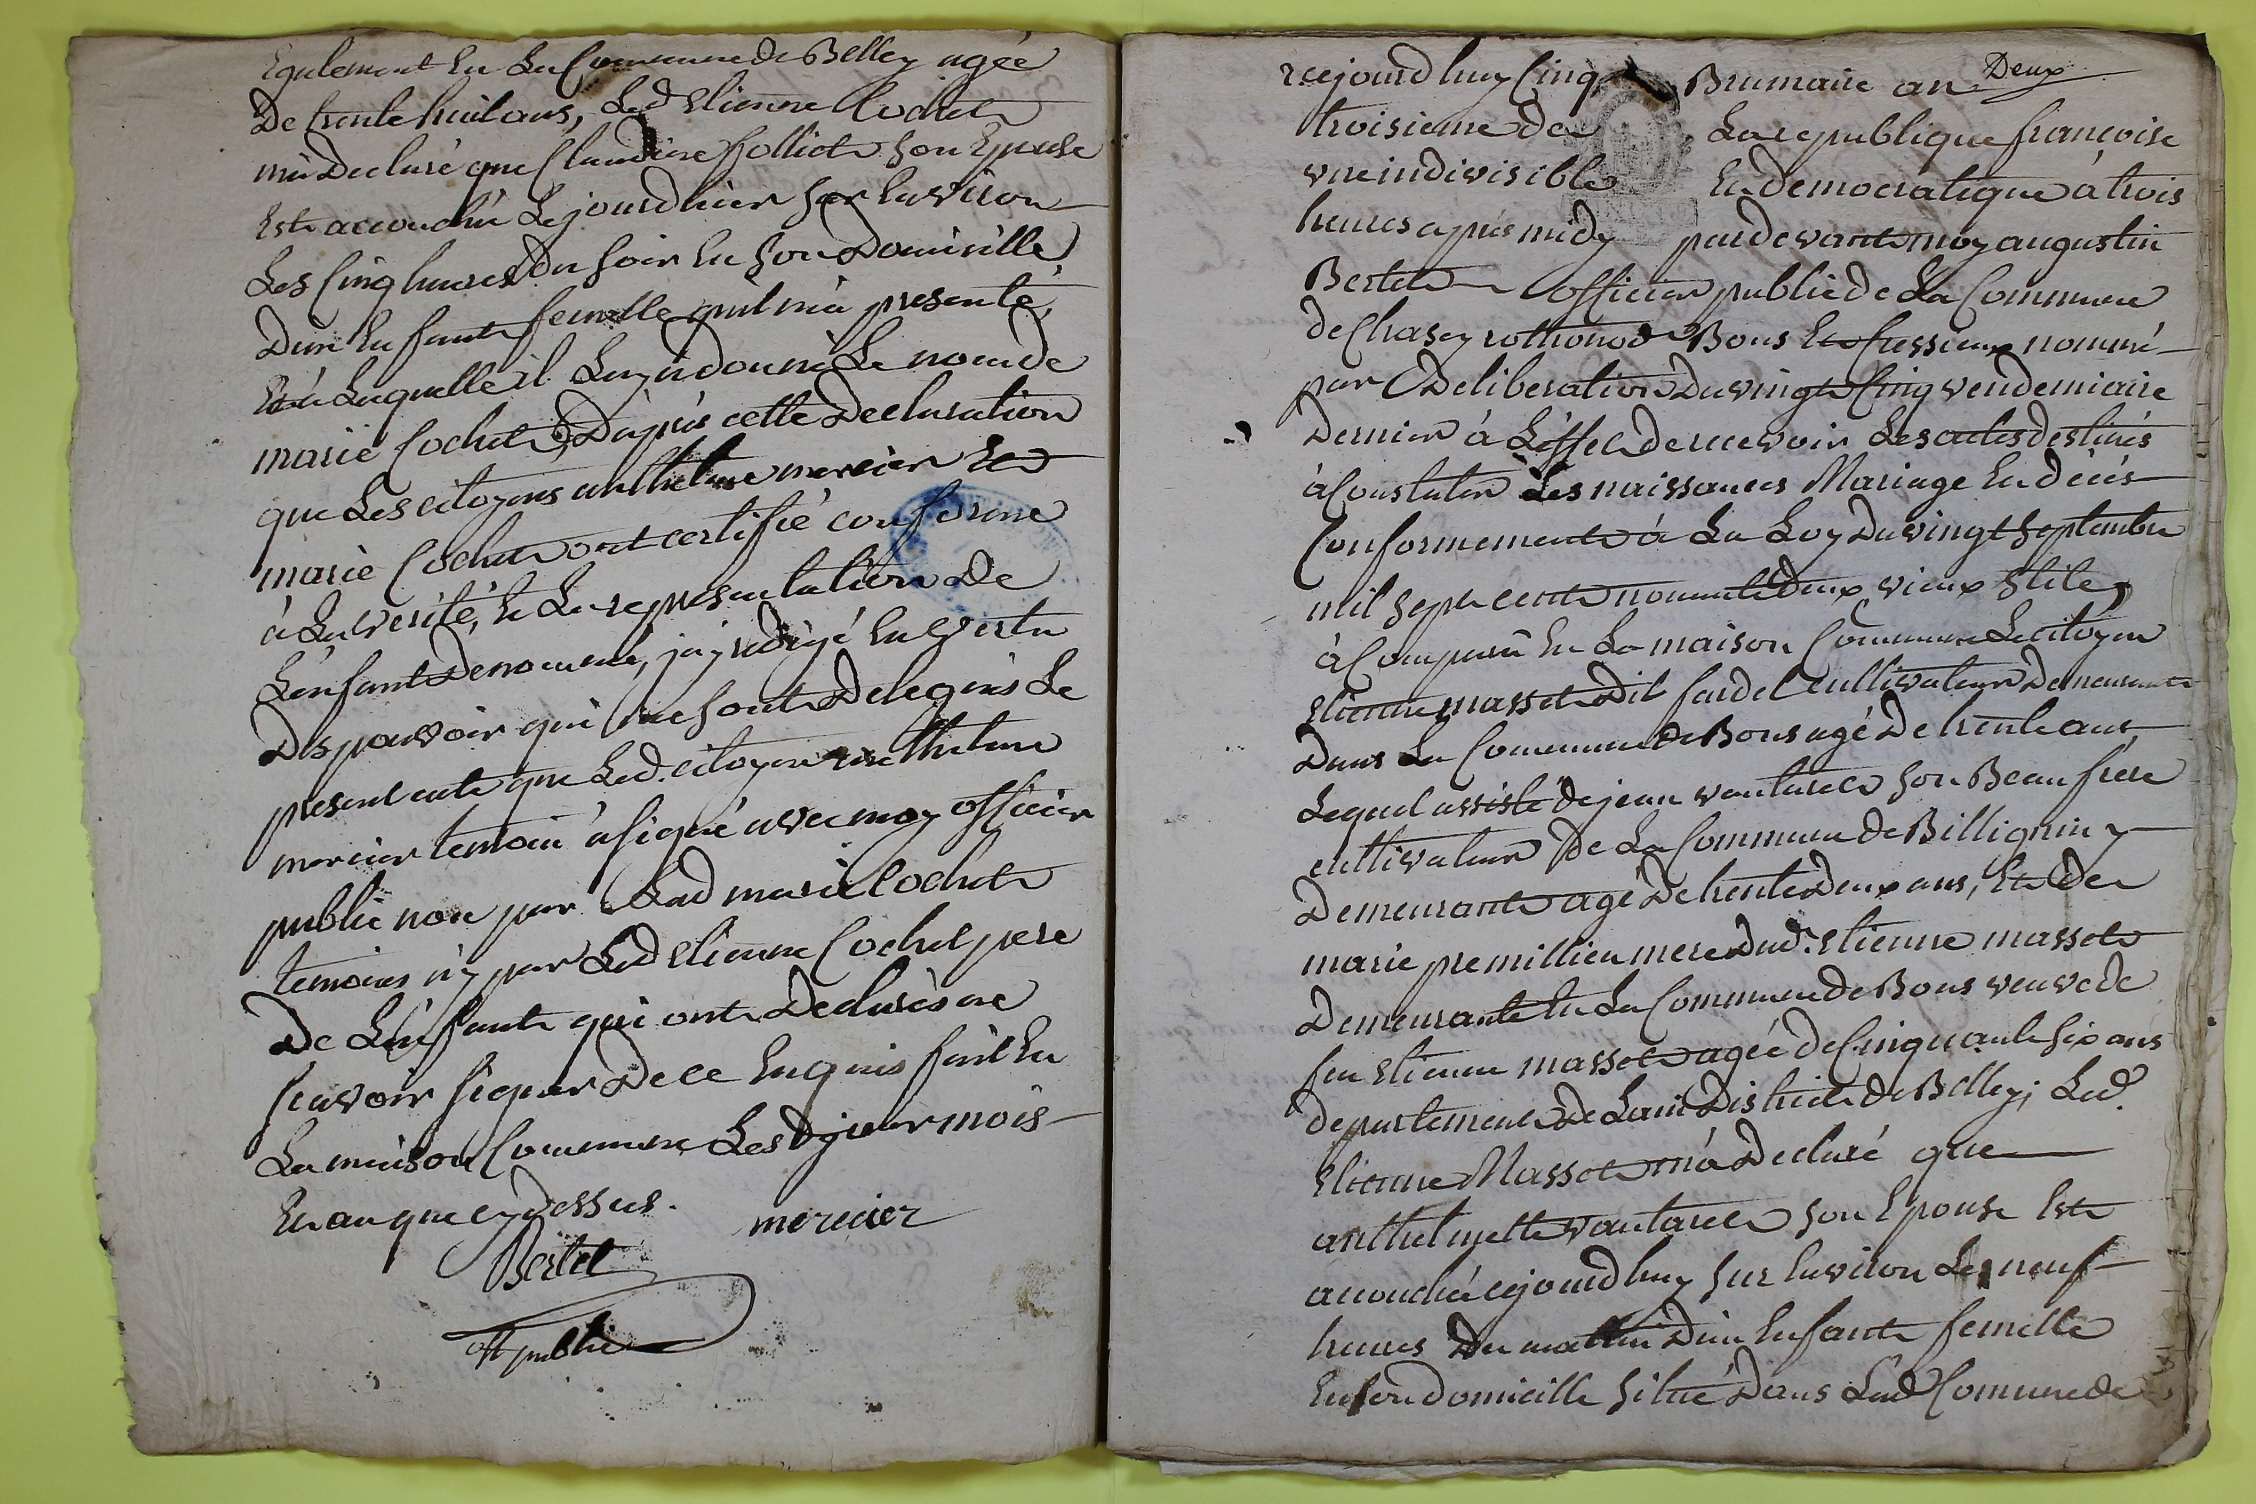 Egalement en La Commune de Belley agée
De trente huit ans, Led Etienne Cochet
m'a Declaré que Claudine folliet son Epouse
Est accouchée Le jourd hier sur Environ
Les Cinq heures du soir en son Domicille
D'un Enfant femelle quil m'a presenté,
Et a Laquelle il Luy a donné Le nom de
marie Cochet, D'apres cette Declaration
que Les citoyens anthelme mercier Et
marie Cochet ont certifié conforme
à La verité, & La representation De
L'enfant Denommé, j'ay redigé en Vertu
Des pouvoir qui me sont Delegués Le
present acte que Led. citoyen anthelme
mercier temoin a signé avec moy officier
public non par Lad marie Cochet
temoins n'y par Led Etienne Cochet pere
De L'enfant qui ont Declarés ne
scavoir signer De ce Enquis fait En
La maison Commune Lesd jour mois
Et an que cy Dessus.
mercier
Bertet
off public
Deux
cejourd huy Cinq Brumaire an
troisieme de La republique françoise
une indivisible Et democratique à trois
heures apres midy pardevant moy augustin
Bertet officier public de La Commune
de Chasey rothonod Bons Et Cressieux nommé
par Deliberation Du vingt Cinq vendemiaire
Dernier à L'effet de recevoir Les actes destinés
à Constater Les naissances Mariage Et décés
Conformement à La Loy Du vingt septembre
mil sept cent nonante deux vieux stile,
à Comparu En La maison Commune Le citoyen
Etienne masset Dit fardel cultivateur Demeurant
Dans La Commune de Bons agé De trente ans
Lequel assisté de jean vantaret son Beau frere
cultivateur De La Commune de Billignin y
Demeurant agé De trente Deux ans, Et De
marie premillieu mere Dud. Etienne masset
Demeurante En La Commune de Bons veuve de
feu Etienne masset agée de Cinquante six ans
departement De Lain District de Belley; Led.
Etienne Masset m'a Declaré que
anthelmette vantaret son Epouse Est
accouchée cejourd huy sur Environ Les neuf
heures Du mattin D'un Enfant femelle
En son domicille situé Dans Lad Commune de